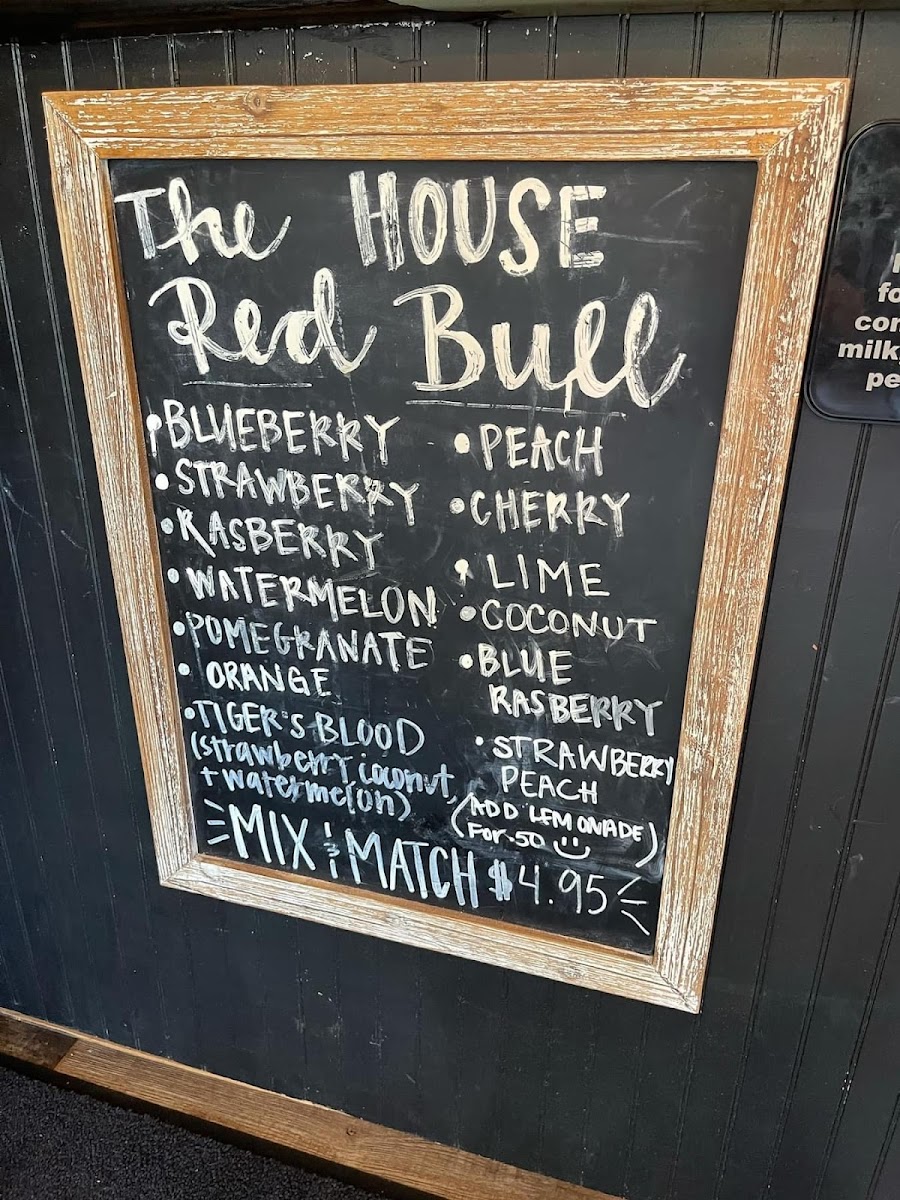 The HOUSE
Red Bull
• BLUEBERRY
• STRAWBERRY
• RASBERRY
• WATERMELON
• POMEGRANATE
• ORANGE
• TIGER'S BLOOD
(strawberry, coconut,
+ watermelon)
• PEACH
• CHERRY
• LIME
• COCONUT
• BLUE
RASBERRY
• STRAWBERRY
PEACH
(ADD LEMONADE
For .50 :))
MIX & MATCH $4.95
fo
con
milk
pe